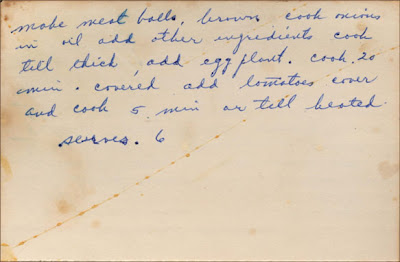 make meat balls, brown cook onions
in oil add other ingredients cook
till thick, add egg plant. cook. 20
min. covered add tomatoes cover
and cook 5 min or till heated.
serves. 6